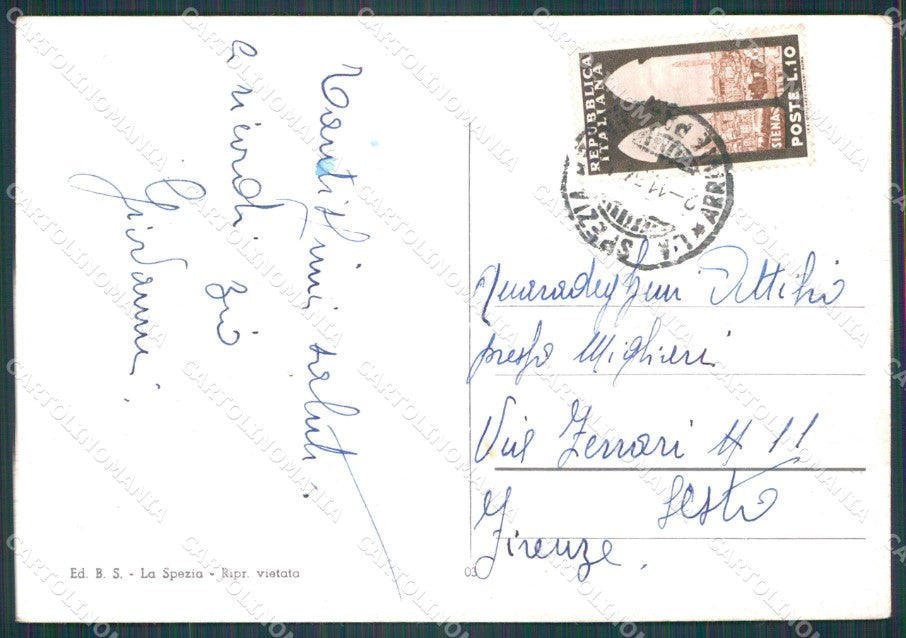 Tantissimi saluti.
e ricordi zio
Giovanni.
REPUBBLICA
ITALIANA
SIENA
POSTE L.10
LA SPEZIA
ARRIVI E P
2-11
Attilio
presso Miglieri
Via Ferrari N 11
Sesto
Firenze.
Ed. B. S. - La Spezia - Ripr. vietata
03
CARTOLINOMANIA